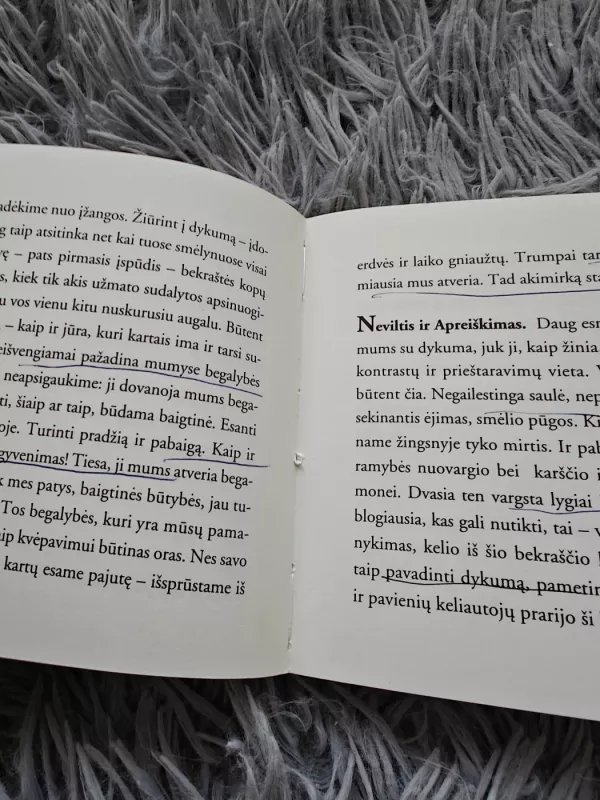 adėkime nuo įžangos. Žiūrint į dykumą – įdo-
g taip atsitinka net kai tuose smėlynuose visai
vę – pats pirmasis įspūdis – bekraštės kopų
s, kiek tik akis užmato sudalytos apsinuogi-
u vos vienu kitu nuskurusiu augalu. Būtent
, – kaip ir jūra, kuri kartais ima ir tarsi su-
eišvengiamai pažadina mumyse begalybės
neapsigaukime: ji dovanoja mums bega-
ti, šiaip ar taip, būdama baigtinė. Esanti
oje. Turinti pradžią ir pabaigą. Kaip ir
gyvenimas! Tiesa, ji mums atveria bega-
k mes patys, baigtinės būtybės, jau tu-
Tos begalybės, kuri yra mūsų pama-
ip kvėpavimui būtinas oras. Nes savo
kartų esame pajutę – išsprūstame iš
erdvės ir laiko gniaužtų. Trumpai tar
miausia mus atveria. Tad akimirką sta
Neviltis ir Apreiškimas. Daug esm
mums su dykuma, juk ji, kaip žinia
kontrastų ir prieštaravimų vieta. V
būtent čia. Negailestinga saulė, nep
sekinantis ėjimas, smėlio pūgos. Ki
name žingsnyje tyko mirtis. Ir pab
ramybės nuovargio bei karščio i
monei. Dvasia ten vargsta lygiai
blogiausia, kas gali nutikti, tai – v
nykimas, kelio iš šio bekraščio
taip pavadinti dykumą, pametin
ir pavienių keliautojų prarijo ši